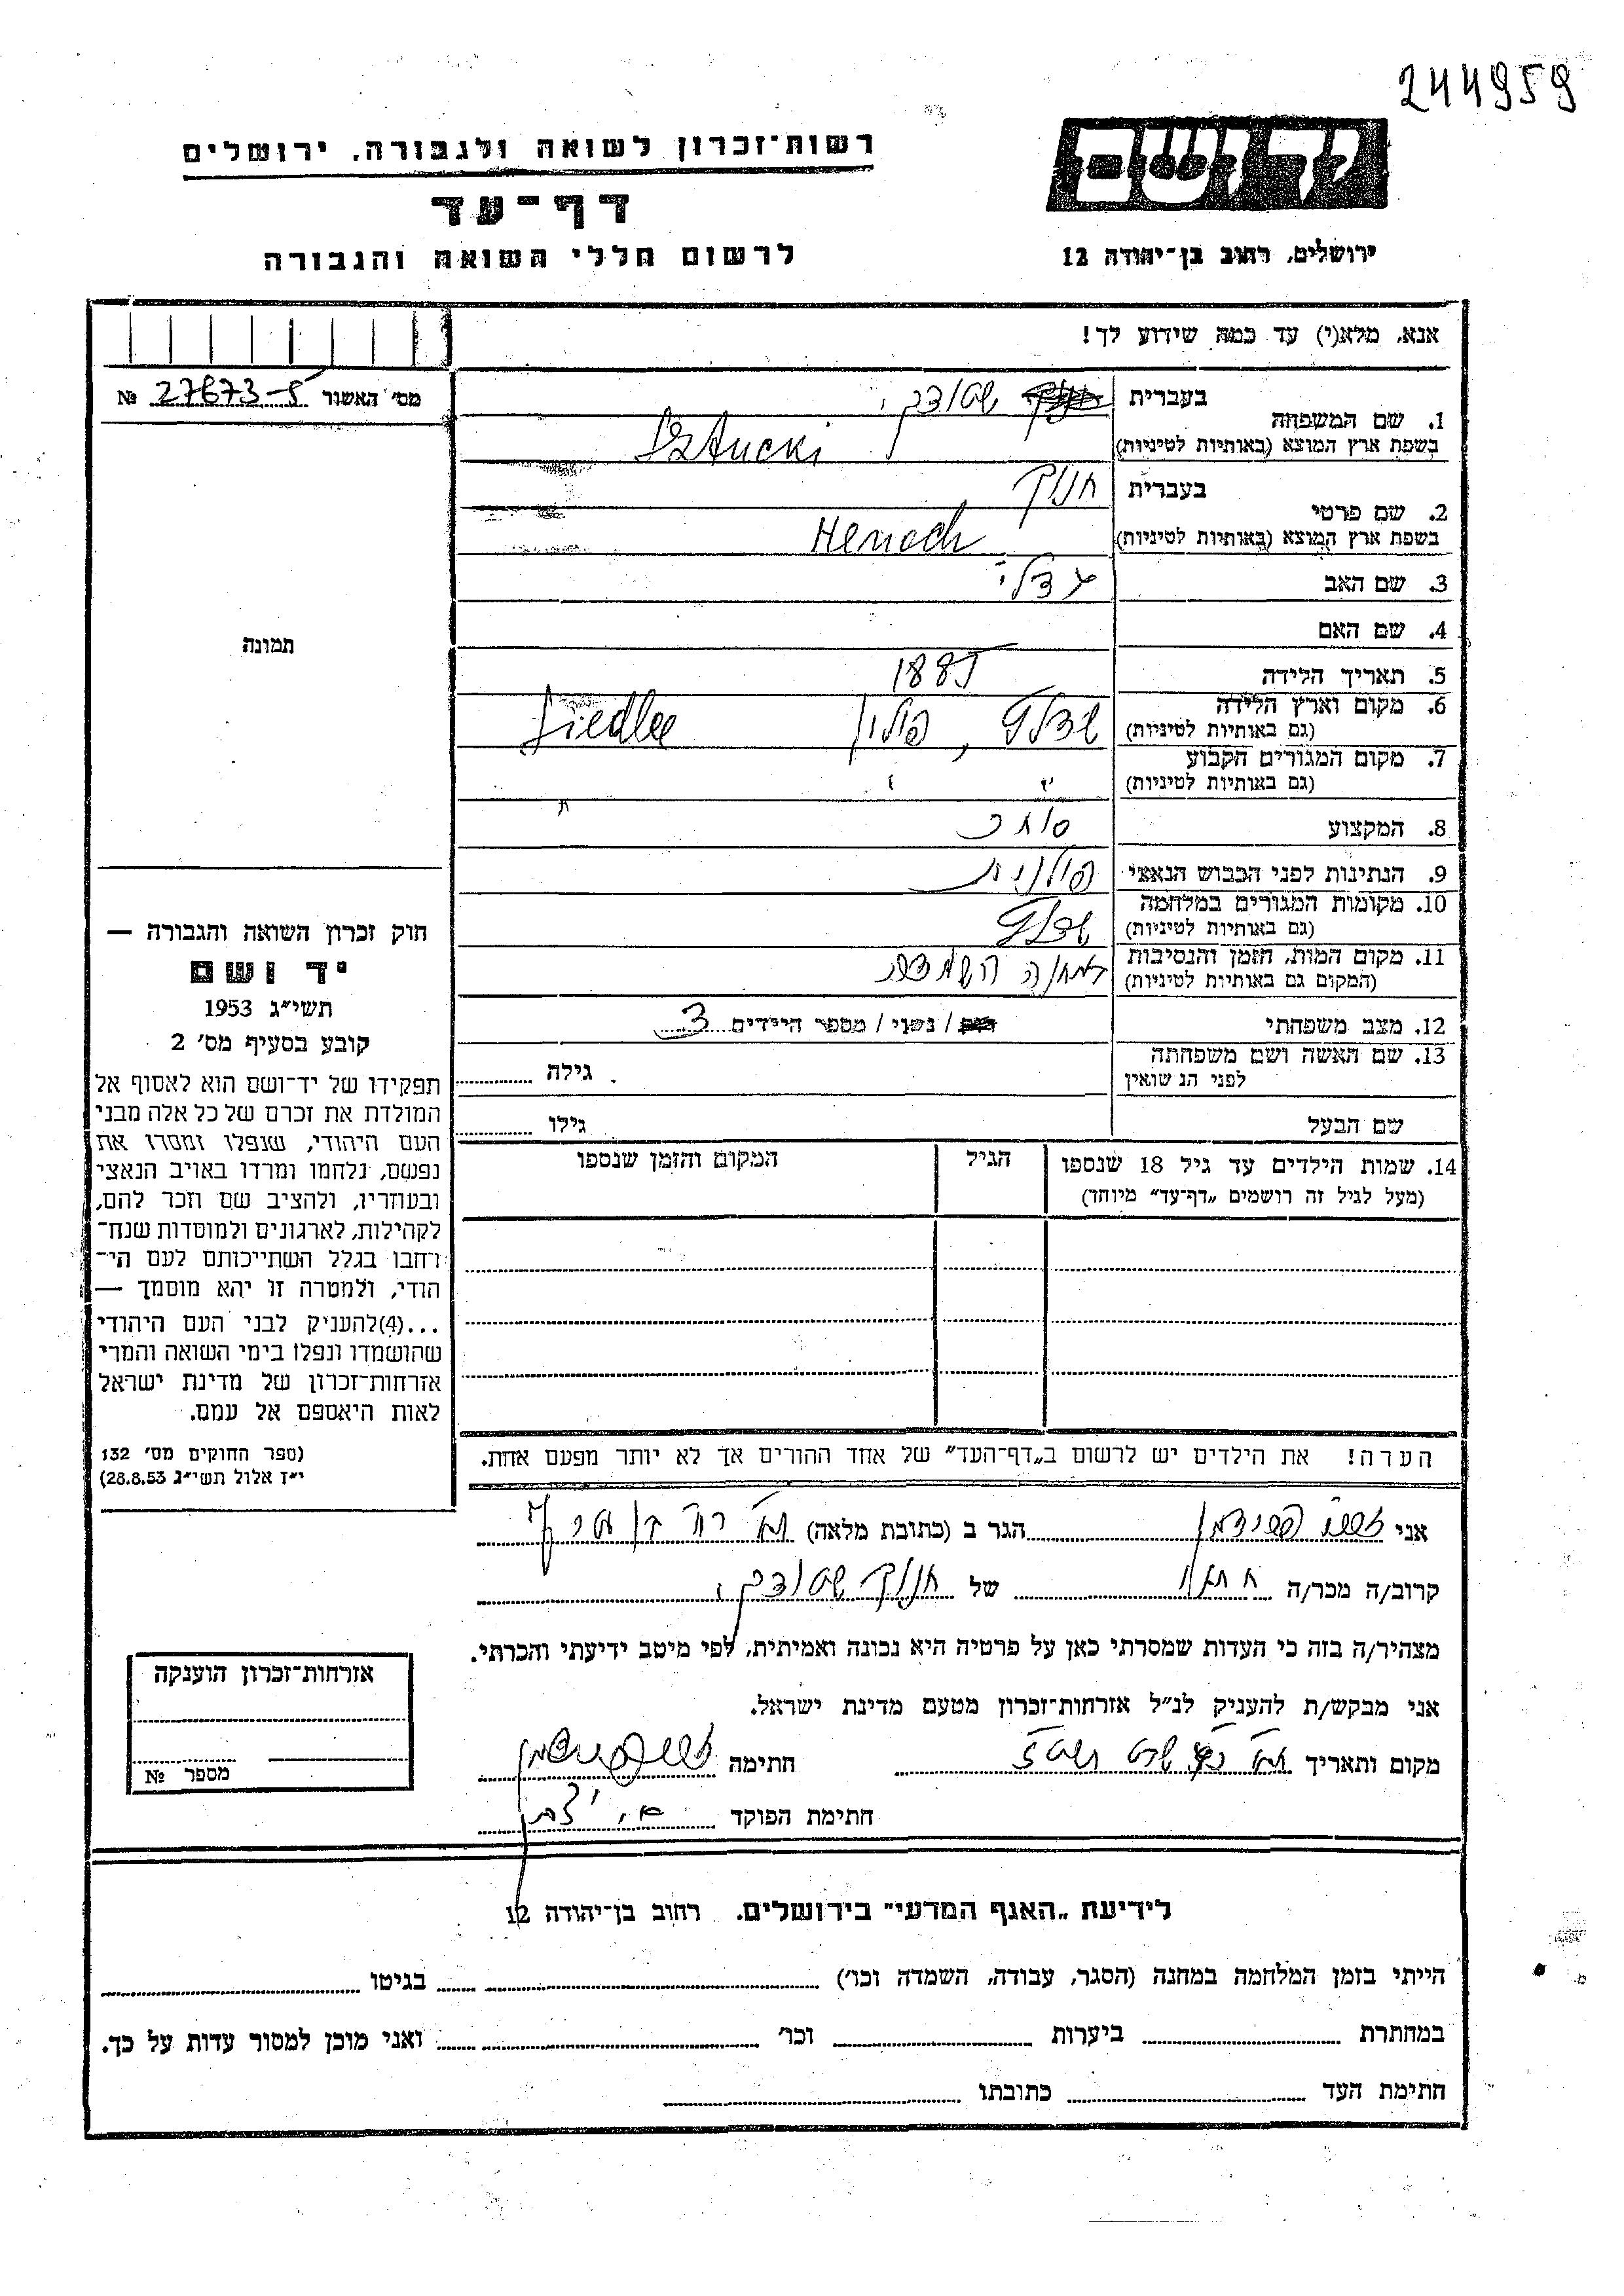 244959
רשות־זכרון לשואה ולגבורה, ירושלים
דף־עד
לרשום חללי השואה והגבורה
יד ושם
ירושלים, רחוב בן־יהודה 12
אנא, מלא(י) עד כמה שידוע לך!
מס׳ האשור 27673-5 №
1. שם המשפחה
בעברית שטוצקי
בשפת ארץ המוצא (באותיות לטיניות) Sztucki
2. שם פרטי
בעברית חנוך
בשפת ארץ המוצא (באותיות לטיניות) Henoch
3. שם האב
4. שם האם
5. תאריך הלידה 1885
6. מקום וארץ הלידה
(גם באותיות לטיניות) שדלץ, פולין Siedlce
7. מקום המגורים הקבוע
(גם באותיות לטיניות) " "
8. המקצוע סוחר
9. הנתינות לפני הכבוש הנאצי פולנית
10. מקומות המגורים במלחמה
(גם באותיות לטיניות) שדלץ
11. מקום המות, הזמן והנסיבות
(המקום גם באותיות לטיניות) במחנה השמדה
12. מצב משפחתי / נשוי / מספר הילדים 3
13. שם האשה ושם משפחתה
לפני הנשואין גילה
שם הבעל גילו
14. שמות הילדים עד גיל 18 שנספו
(מעל לגיל זה רושמים „דף־עד״ מיוחד)
הגיל
המקום והזמן שנספו
הערה! את הילדים יש לרשום ב„דף־העד״ של אחד ההורים אך לא יותר מפעם אחת.
תמונה
חוק זכרון השואה והגבורה —
יד ושם
תשי״ג 1953
קובע בסעיף מס׳ 2
תפקידו של יד־ושם הוא לאסוף אל
המולדת את זכרם של כל אלה מבני
העם היהודי, שנפלו ומסרו את
נפשם, נלחמו ומרדו באויב הנאצי
ובעוזריו, ולהציב שם וזכר להם,
לקהילות, לארגונים ולמוסדות שנח־
רבו בגלל השתייכותם לעם הי־
הודי, ולמטרה זו יהא מוסמך —
...(4)להעניק לבני העם היהודי
שהושמדו ונפלו בימי השואה והמרי
אזרחות־זכרון של מדינת ישראל
לאות היאספם אל עמם.
(ספר החוקים מס׳ 132
י״ז אלול תשי״ג 28.8.53)
אני הגר ב (כתובת מלאה)
קרוב/ה מכר/ה חתנו של חנוך שטוצקי
מצהיר/ה בזה כי העדות שמסרתי כאן על פרטיה היא נכונה ואמיתית, לפי מיטב ידיעתי והכרתי.
אני מבקש/ת להעניק לנ״ל אזרחות־זכרון מטעם מדינת ישראל.
מקום ותאריך חתימה
חתימת הפוקד
אזרחות־זכרון הוענקה
מספר №
לידיעת „האגף המדעי״ בירושלים. רחוב בן־יהודה 12
הייתי בזמן המלחמה במחנה (הסגר, עבודה, השמדה וכו׳) בגיטו
במחתרת ביערות וכו׳ ואני מוכן למסור עדות על כך.
חתימת העד כתובתו